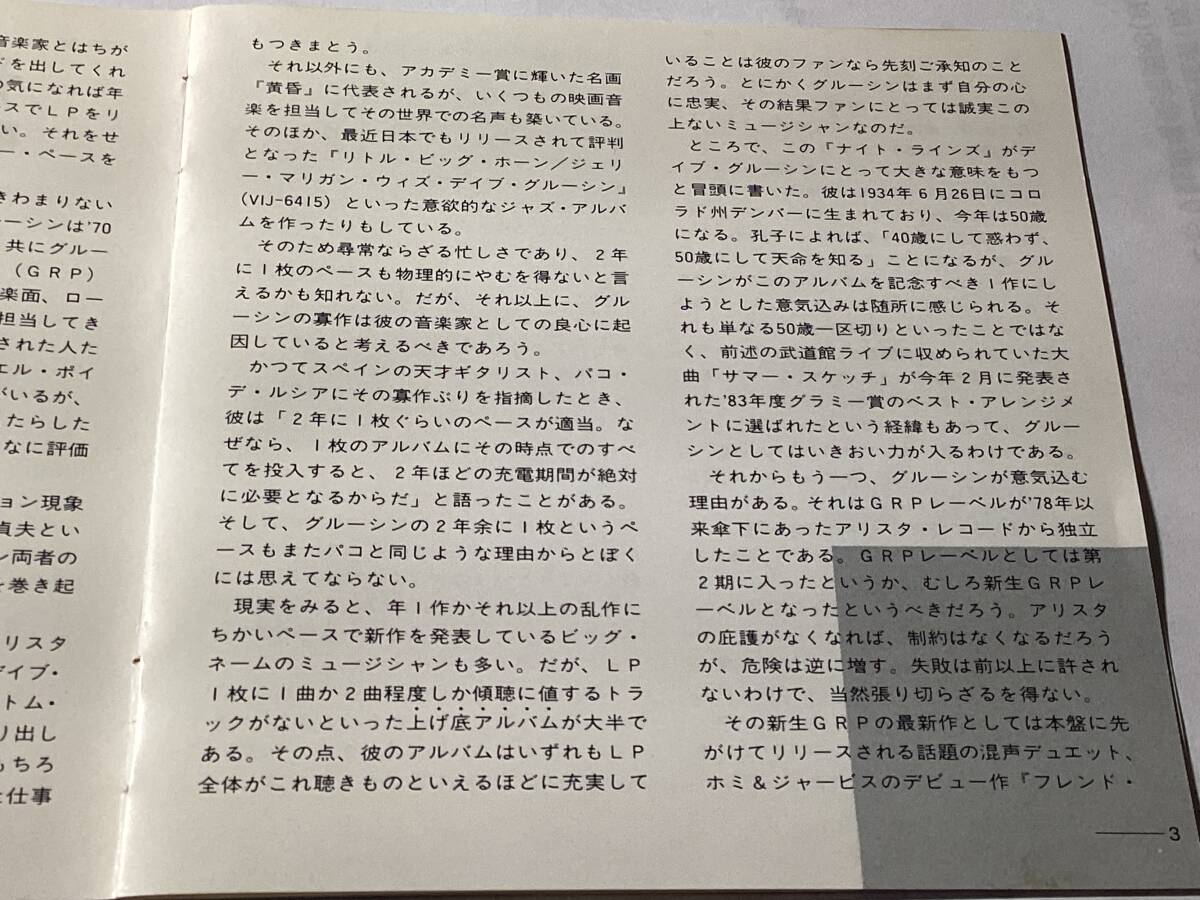 音楽家とはちが
ドを出してくれ
の気になれば年
ースでＬＰをリ
い。それをせ
ー・ペースを
きわまりない
ルーシンは'70
共にグルー
（ＧＲＰ）
楽面、ロー
担当してき
された人た
エル・ポイ
がいるが、
たらした
なに評価
ョン現象
貞夫とい
ン両者の
を巻き起
リスタ
デイブ・
トム・
り出し
もちろ
た仕事
もつきまとう。
それ以外にも、アカデミー賞に輝いた名画
『黄昏』に代表されるが、いくつもの映画音
楽を担当してその世界での名声も築いている。
そのほか、最近日本でもリリースされて評判
となった『リトル・ビッグ・ホーン／ジェリ
ー・マリガン・ウィズ・デイブ・グルーシン』
(VIJ-6415) といった意欲的なジャズ・アルバ
ムを作ったりもしている。
そのため尋常ならざる忙しさであり、２年
に１枚のペースも物理的にやむを得ないと言
えるかも知れない。だが、それ以上に、グル
ーシンの寡作は彼の音楽家としての良心に起
因していると考えるべきであろう。
かつてスペインの天才ギタリスト、パコ・
デ・ルシアにその寡作ぶりを指摘したとき、
彼は「２年に１枚ぐらいのペースが適当。な
ぜなら、１枚のアルバムにその時点でのすべ
てを投入すると、２年ほどの充電期間が絶対
に必要となるからだ」と語ったことがある。
そして、グルーシンの２年余に１枚というペ
ースもまたパコと同じような理由からとぼく
には思えてならない。
現実をみると、年１作かそれ以上の乱作に
ちかいペースで新作を発表しているビッグ・
ネームのミュージシャンも多い。だが、ＬＰ
１枚に１曲か２曲程度しか傾聴に値するトラ
ックがないといった上げ底アルバムが大半で
ある。その点、彼のアルバムはいずれもＬＰ
全体がこれ聴きものといえるほどに充実して
いることは彼のファンなら先刻ご承知のこと
だろう。とにかくグルーシンはまず自分の心
に忠実、その結果ファンにとっては誠実この
上ないミュージシャンなのだ。
ところで、この「ナイト・ラインズ」がデ
イブ・グルーシンにとって大きな意味をもつ
と冒頭に書いた。彼は1934年６月26日にコロ
ラド州デンバーに生まれており、今年は50歳
になる。孔子によれば、「40歳にして惑わず、
50歳にして天命を知る」ことになるが、グル
ーシンがこのアルバムを記念すべき１作にし
ようとした意気込みは随所に感じられる。そ
れも単なる50歳一区切りといったことではな
く、前述の武道館ライブに収められていた大
曲「サマー・スケッチ」が今年２月に発表さ
れた'83年度グラミー賞のベスト・アレンジメ
ントに選ばれたという経緯もあって、グルー
シンとしてはいきおい力が入るわけである。
それからもう一つ、グルーシンが意気込む
理由がある。それはＧＲＰレーベルが'78年以
来傘下にあったアリスタ・レコードから独立
したことである。ＧＲＰレーベルとしては第
２期に入ったというか、むしろ新生ＧＲＰレ
ーベルとなったというべきだろう。アリスタ
の庇護がなくなれば、制約はなくなるだろう
が、危険は逆に増す。失敗は前以上に許され
ないわけで、当然張り切らざるを得ない。
その新生ＧＲＰの最新作としては本盤に先
がけてリリースされる話題の混声デュエット、
ホミ＆ジャービスのデビュー作『フレンド・
3